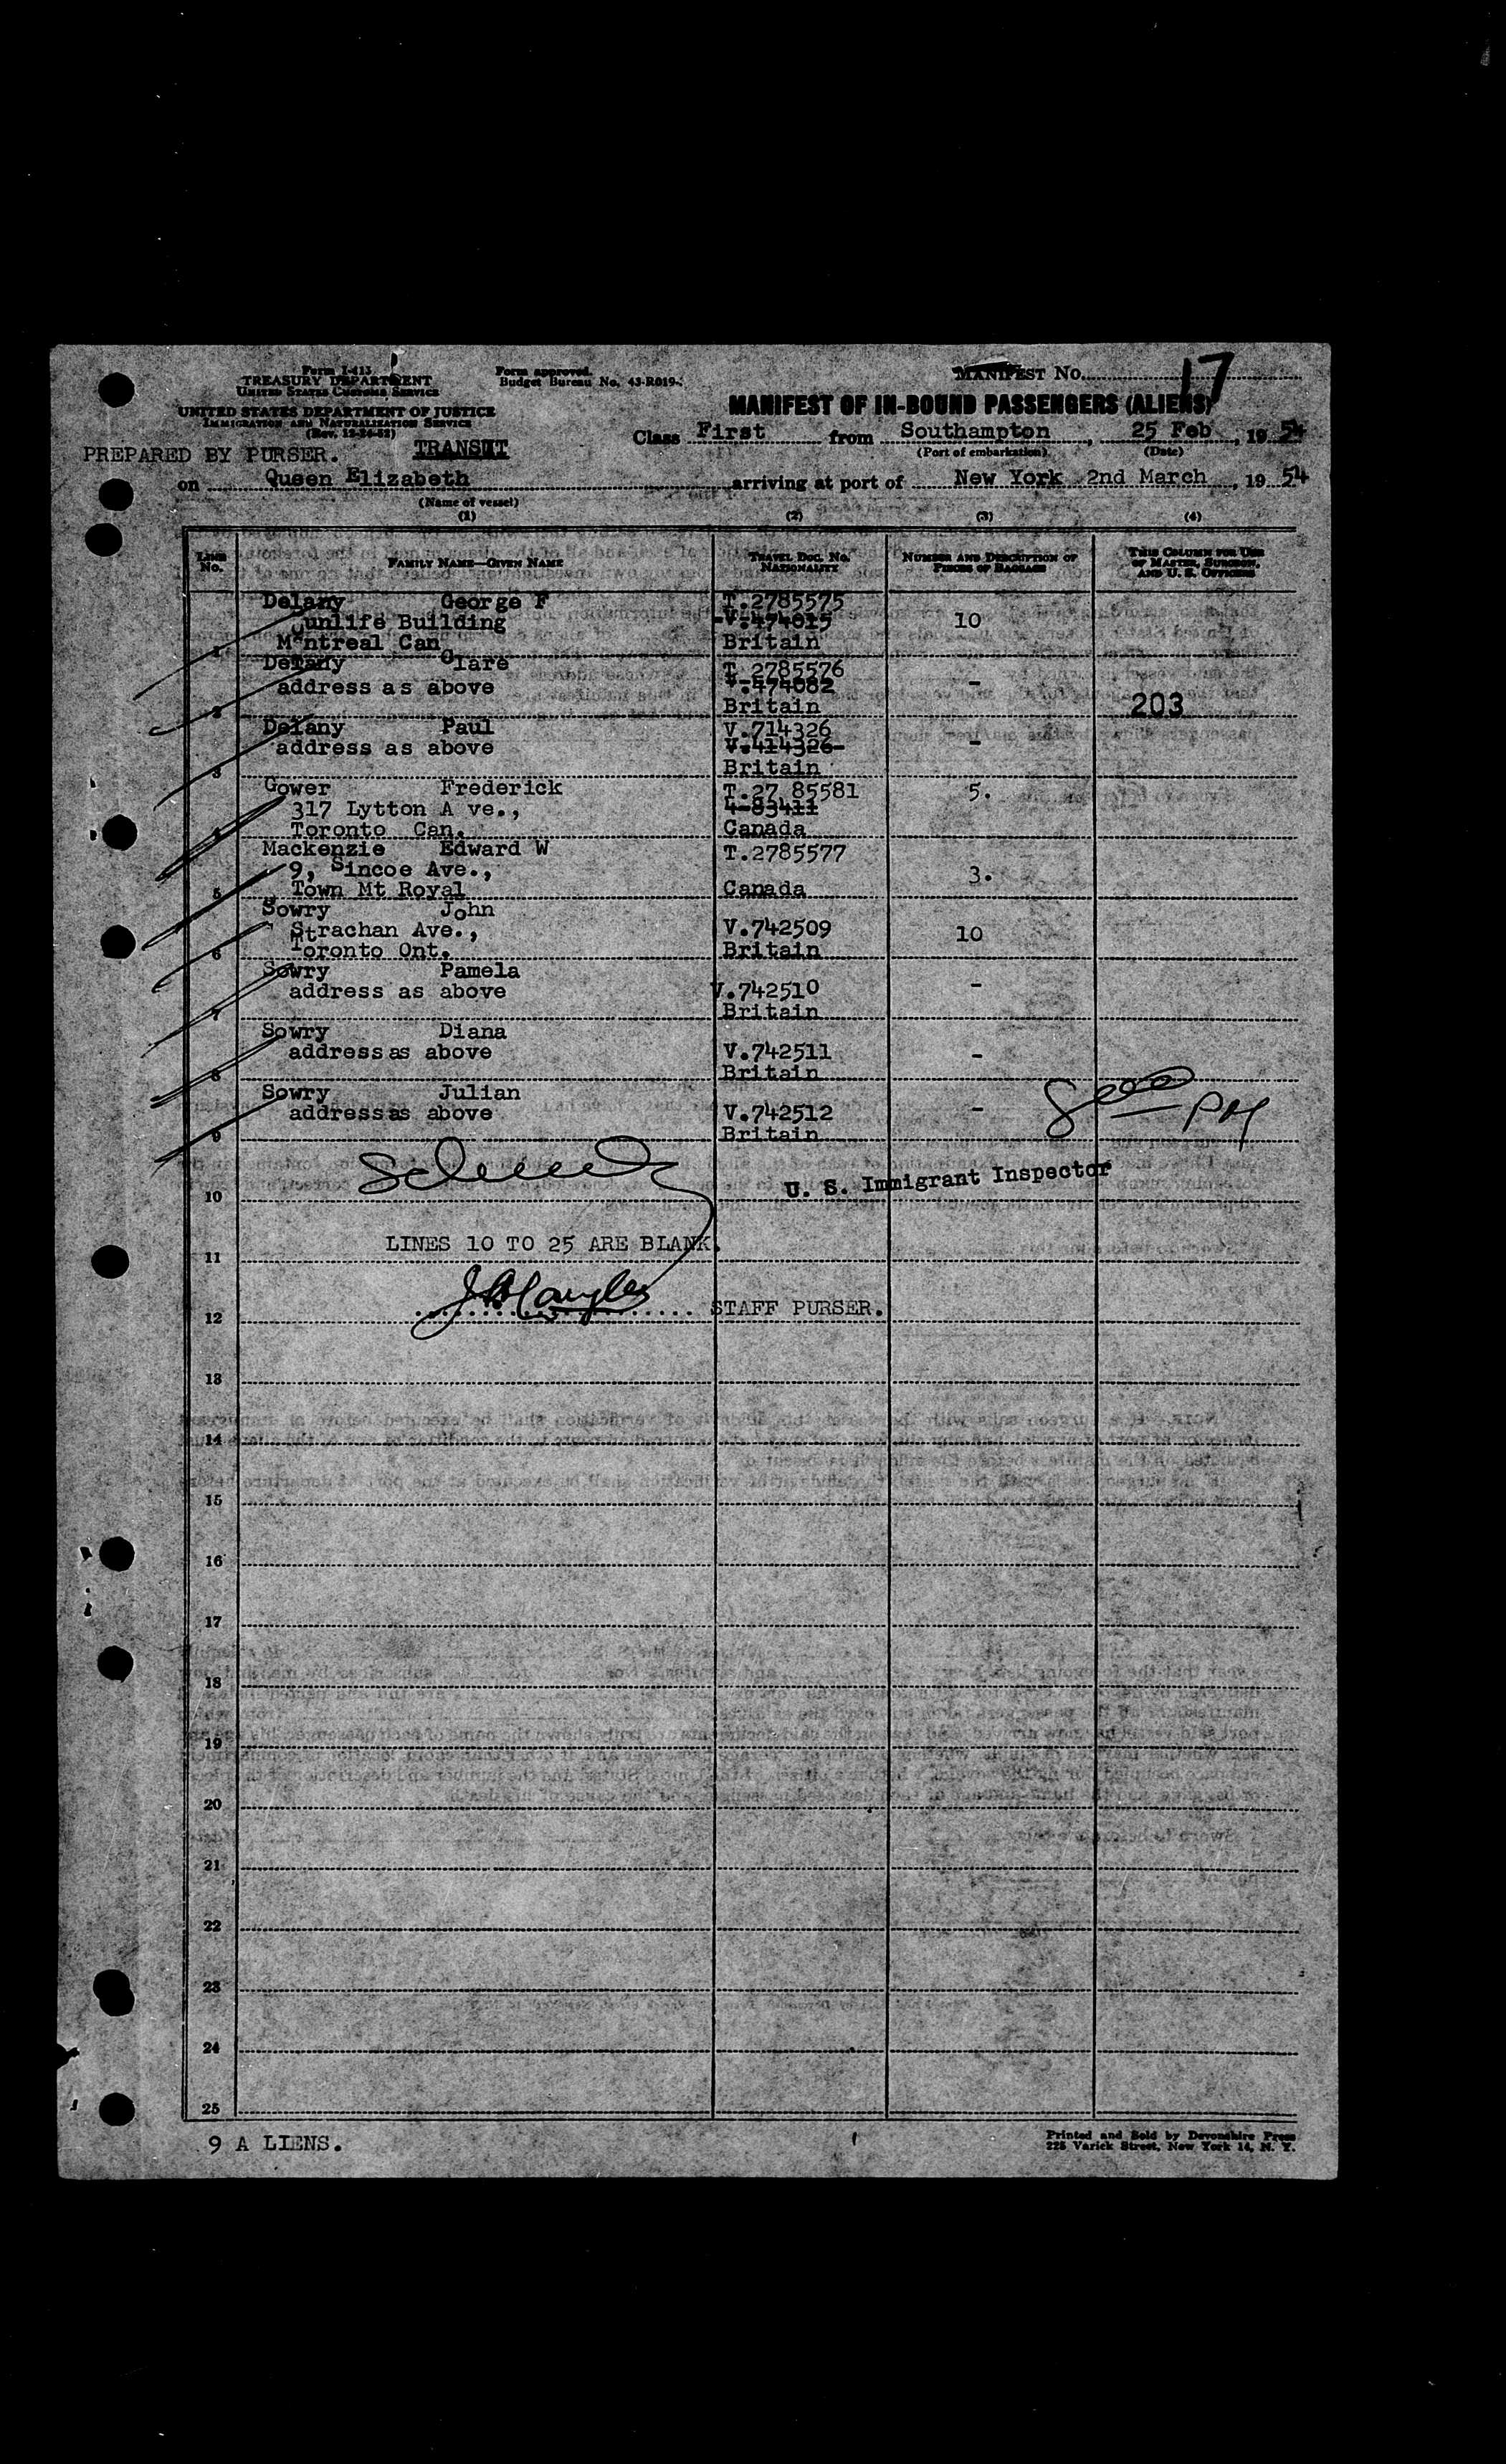 Form I-413
TREASURY DEPARTMENT
UNITED STATES CUSTOMS SERVICE
UNITED STATES DEPARTMENT OF JUSTICE
IMMIGRATION AND NATURALIZATION SERVICE
(Rev. 12-24-52)
Form approved.
Budget Bureau No. 43-R019-
MANIFEST NO. 17
MANIFEST OF IN-BOUND PASSENGERS (ALIENS)
PREPARED BY PURSER.
TRANSIT
Class First from Southampton, 25 Feb, 1954
(Port of embarkation) (Date)
on Queen Elizabeth arriving at port of New York 2nd March, 1954
(Name of vessel)
(1) (2) (3) (4)
LINE NO. FAMILY NAME—GIVEN NAME TRAVEL DOC. NO. NATIONALITY NUMBER AND DESCRIPTION OF PIECES OF BAGGAGE THIS COLUMN FOR USE OF MASTER, SURGEON, AND U. S. OFFICERS
Delany George F T.2785575
Cunlife Building V.474015 10
1 Montreal Can Britain
Delany Clare T.2785576
address as above V.474082 -
2 Britain 203
Delany Paul V.714326
address as above V.414326 -
3 Britain
Gower Frederick T.27 85581 5.
317 Lytton A ve., 4-83411
4 Toronto Can. Canada
Mackenzie Edward W T.2785577
9, Sincoe Ave., 3.
5 Town Mt Royal Canada
Sowry John
Strachan Ave., V.742509 10
6 Toronto Ont. Britain
Sowry Pamela
address as above V.742510 -
7 Britain
Sowry Diana
address as above V.742511 -
8 Britain
Sowry Julian
address as above V.742512 -
9 Britain
U. S. Immigrant Inspector
10
LINES 10 TO 25 ARE BLANK.
11
STAFF PURSER.
12
13
14
15
16
17
18
19
20
21
22
23
24
25
9 A LIENS.
Printed and Sold by Devonshire Press
225 Varick Street, New York 14, N. Y.